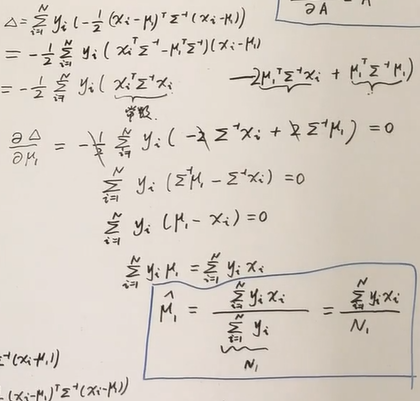 ∂A
Δ = Σ_{i=1}^{N} y_i (-1/2 (x_i-μ_1)^T Σ^{-1} (x_i-μ_1))
= -1/2 Σ_{i=1}^{N} y_i (x_i^T Σ^{-1} - μ_1^T Σ^{-1})(x_i-μ_1)
= -1/2 Σ_{i=1}^{N} y_i ( x_i^T Σ^{-1} x_i - 2μ_1^T Σ^{-1} x_i + μ_1^T Σ^{-1} μ_1 )
常数
∂Δ/∂μ_1 = -1/2 Σ_{i=1}^{N} y_i ( -2 Σ^{-1} x_i + 2 Σ^{-1} μ_1 ) = 0
Σ_{i=1}^{N} y_i (Σ^{-1} μ_1 - Σ^{-1} x_i) = 0
Σ_{i=1}^{N} y_i (μ_1 - x_i) = 0
Σ_{i=1}^{N} y_i μ_1 = Σ_{i=1}^{N} y_i x_i
μ̂_1 = Σ_{i=1}^{N} y_i x_i / Σ_{i=1}^{N} y_i = Σ_{i=1}^{N} y_i x_i / N_1
N_1
Σ^{-1} (x_i-μ_1))
(x_i-μ_1)^T Σ^{-1} (x_i-μ_1))